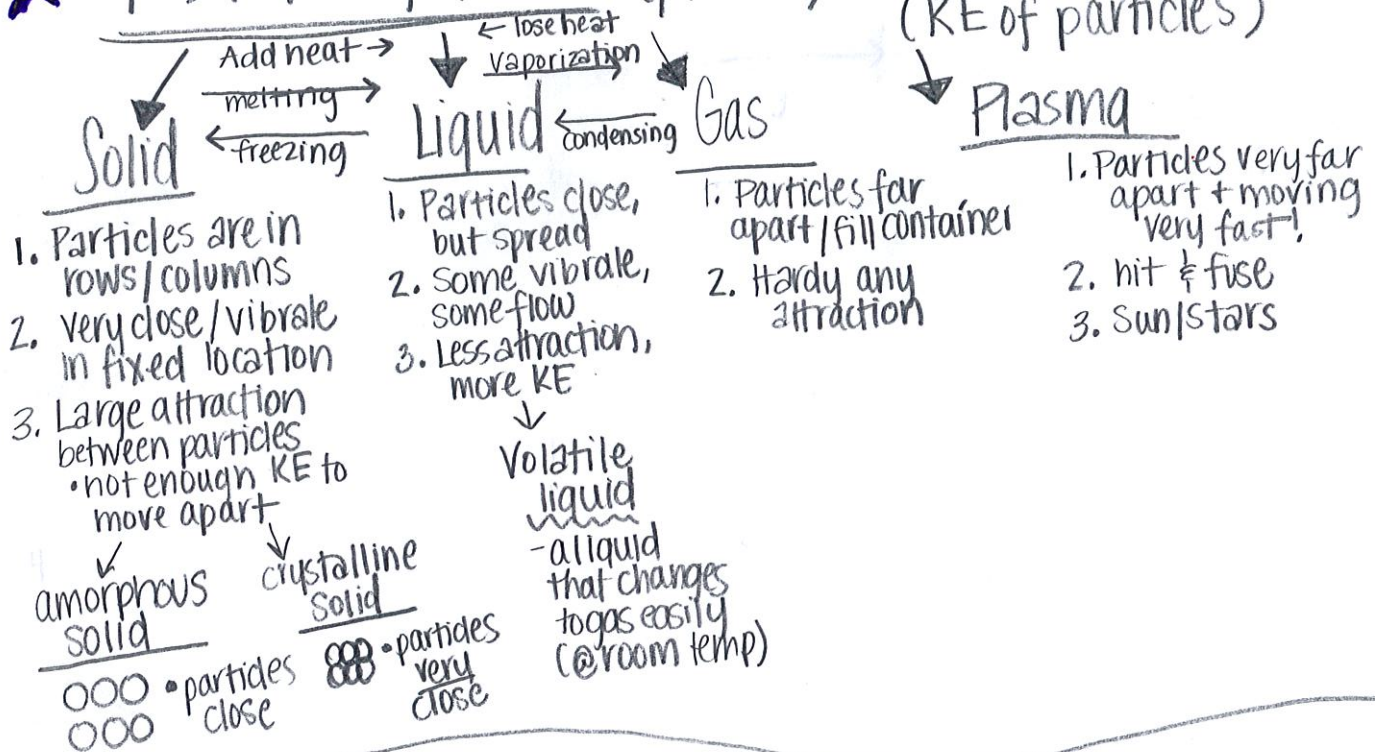 (KE of particles)
Add heat →
← lose heat
vaporization
melting
freezing
condensing
Solid
Liquid
Gas
Plasma
1. Particles are in
rows/columns
2. very close/vibrate
in fixed location
3. Large attraction
between particles
•not enough KE to
move apart
amorphous
solid
•particles
close
crystalline
solid
•particles
very
close
1. Particles close,
but spread
2. Some vibrate,
some flow
3. Less attraction,
more KE
Volatile
liquid
-a liquid
that changes
to gas easily
(@room temp)
1. Particles far
apart/fill container
2. Hardy any
attraction
1. Particles very far
apart + moving
very fast!
2. hit & fuse
3. Sun/stars